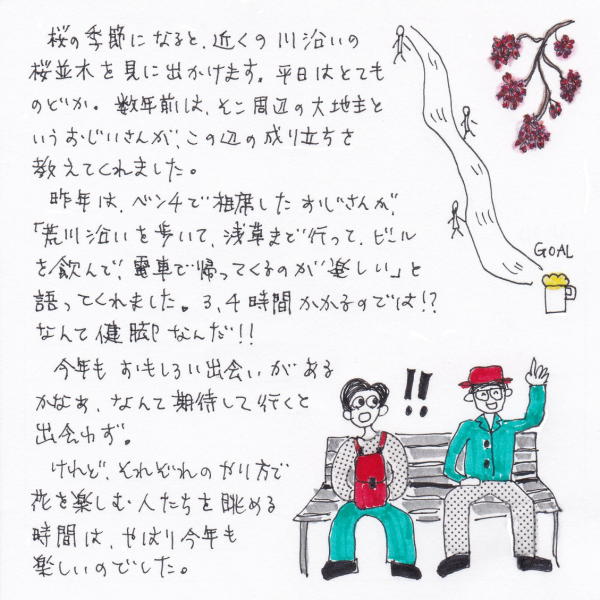 桜の季節になると、近くの川沿いの
桜並木を見に出かけます。平日はとても
のどか。数年前は、そこ周辺の大地主と
いうおじいさんが、この辺の成り立ちを
教えてくれました。
昨年は、ベンチで相席したおじさんが、
「荒川沿いを歩いて、浅草まで行って、ビール
を飲んで、電車で帰ってくるのが楽しい」と
語ってくれました。3、4時間かかるのでは!?
なんて健脚なんだ!!
今年もおもしろい出会いがある
かなぁ、なんて期待して行くと
出会わず。
けれど、それぞれのやり方で
花を楽しむ人たちを眺める
時間は、やはり今年も
楽しいのでした。
GOAL
!!